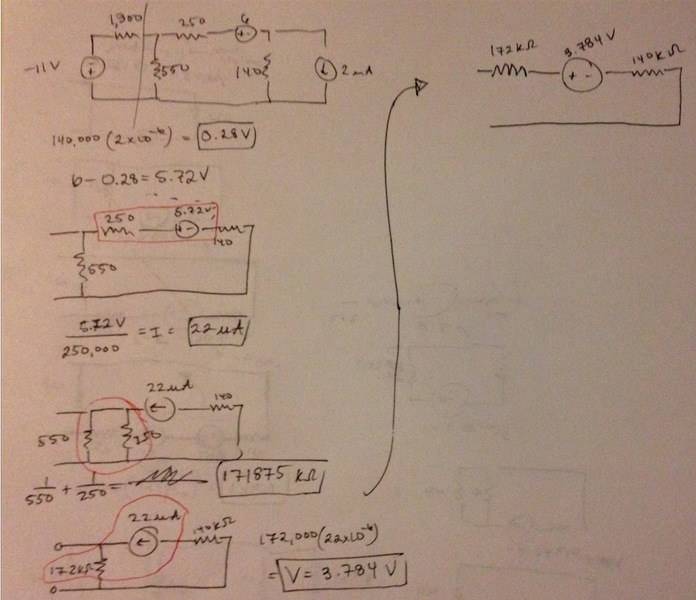 1,300 250 6
-11V + - 550 140 2 μA
140,000 (2x10⁻⁶) = 0.28V
6 - 0.28 = 5.72V
250 5.72V
+ - 140
550
5.72V / 250,000 = I = 22 μA
22 μA 140
550 250
1/550 + 1/250 = 171875 kΩ
22 μA 140kΩ
172kΩ
172,000 (22x10⁻⁶)
= V = 3.784 V
172kΩ 3.784 V 140kΩ
+ -